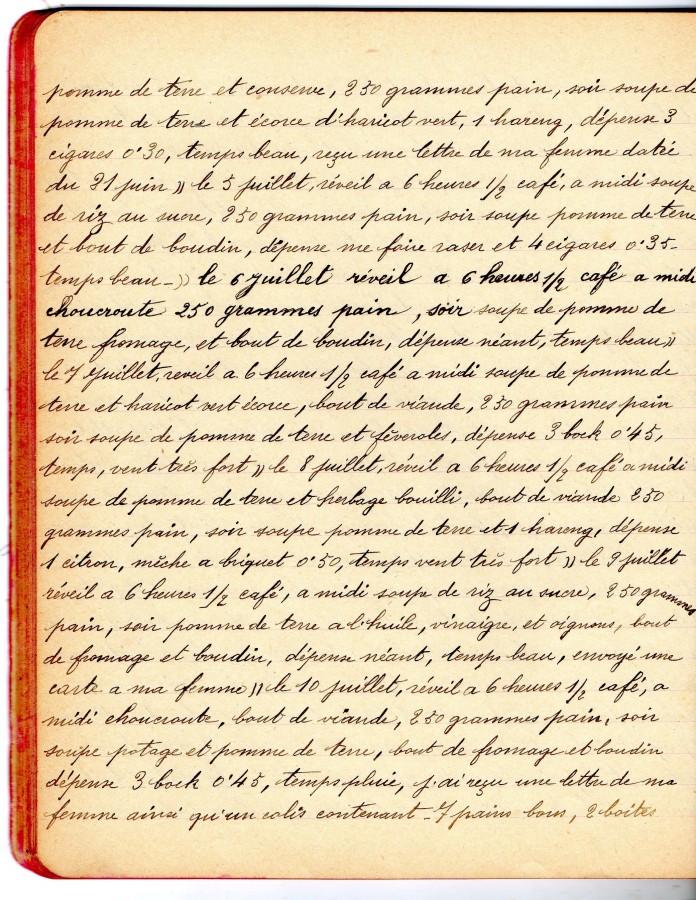 pomme de terre et conserve, 250 grammes pain, soir soupe de
pomme de terre et écorce d'haricot vert, 1 hareng, dépense 3
cigares 0'30, temps beau, reçu une lettre de ma femme datée
du 21 juin )) le 5 juillet, réveil a 6 heures 1/2 café, a midi soupe
de riz au sucre, 250 grammes pain, soir soupe pomme de terre
et bout de boudin, dépense me faire raser et 4 cigares 0'35_
temps beau_)) le 6 Juillet réveil a 6 heures 1/2 café a midi
choucroute 250 grammes pain, soir soupe de pomme de
terre fromage, et bout de boudin, dépense néant, temps beau ))
le 7 Juillet, reveil a 6 heures 1/2 café a midi soupe de pomme de
terre et haricot vert écorce, bout de viande, 250 grammes pain
soir soupe de pomme de terre et féveroles, dépense 3 bock 0'45,
temps, vent très fort )) le 8 juillet, réveil a 6 heures 1/2 café a midi
soupe de pomme de terre et herbage bouilli, bout de viande 250
grammes pain, soir soupe pomme de terre et 1 hareng, dépense
1 citron, mèche a briquet 0'50, temps vent très fort )) le 9 juillet
réveil a 6 heures 1/2 café, a midi soupe de riz au sucre, 250 grammes
pain, soir pomme de terre a l'huile, vinaigre, et oignons, bout
de fromage et boudin, dépense néant, temps beau, envoyé une
carte a ma femme )) le 10 juillet, réveil a 6 heures 1/2 café, a
midi choucroute, bout de viande, 250 grammes pain, soir
soupe potage et pomme de terre, bout de fromage et boudin
dépense 3 bock 0'45, temps pluie, j'ai reçu une lettre de ma
femme ainsi qu'un colis contenant _ 7 pains bons, 2 boites